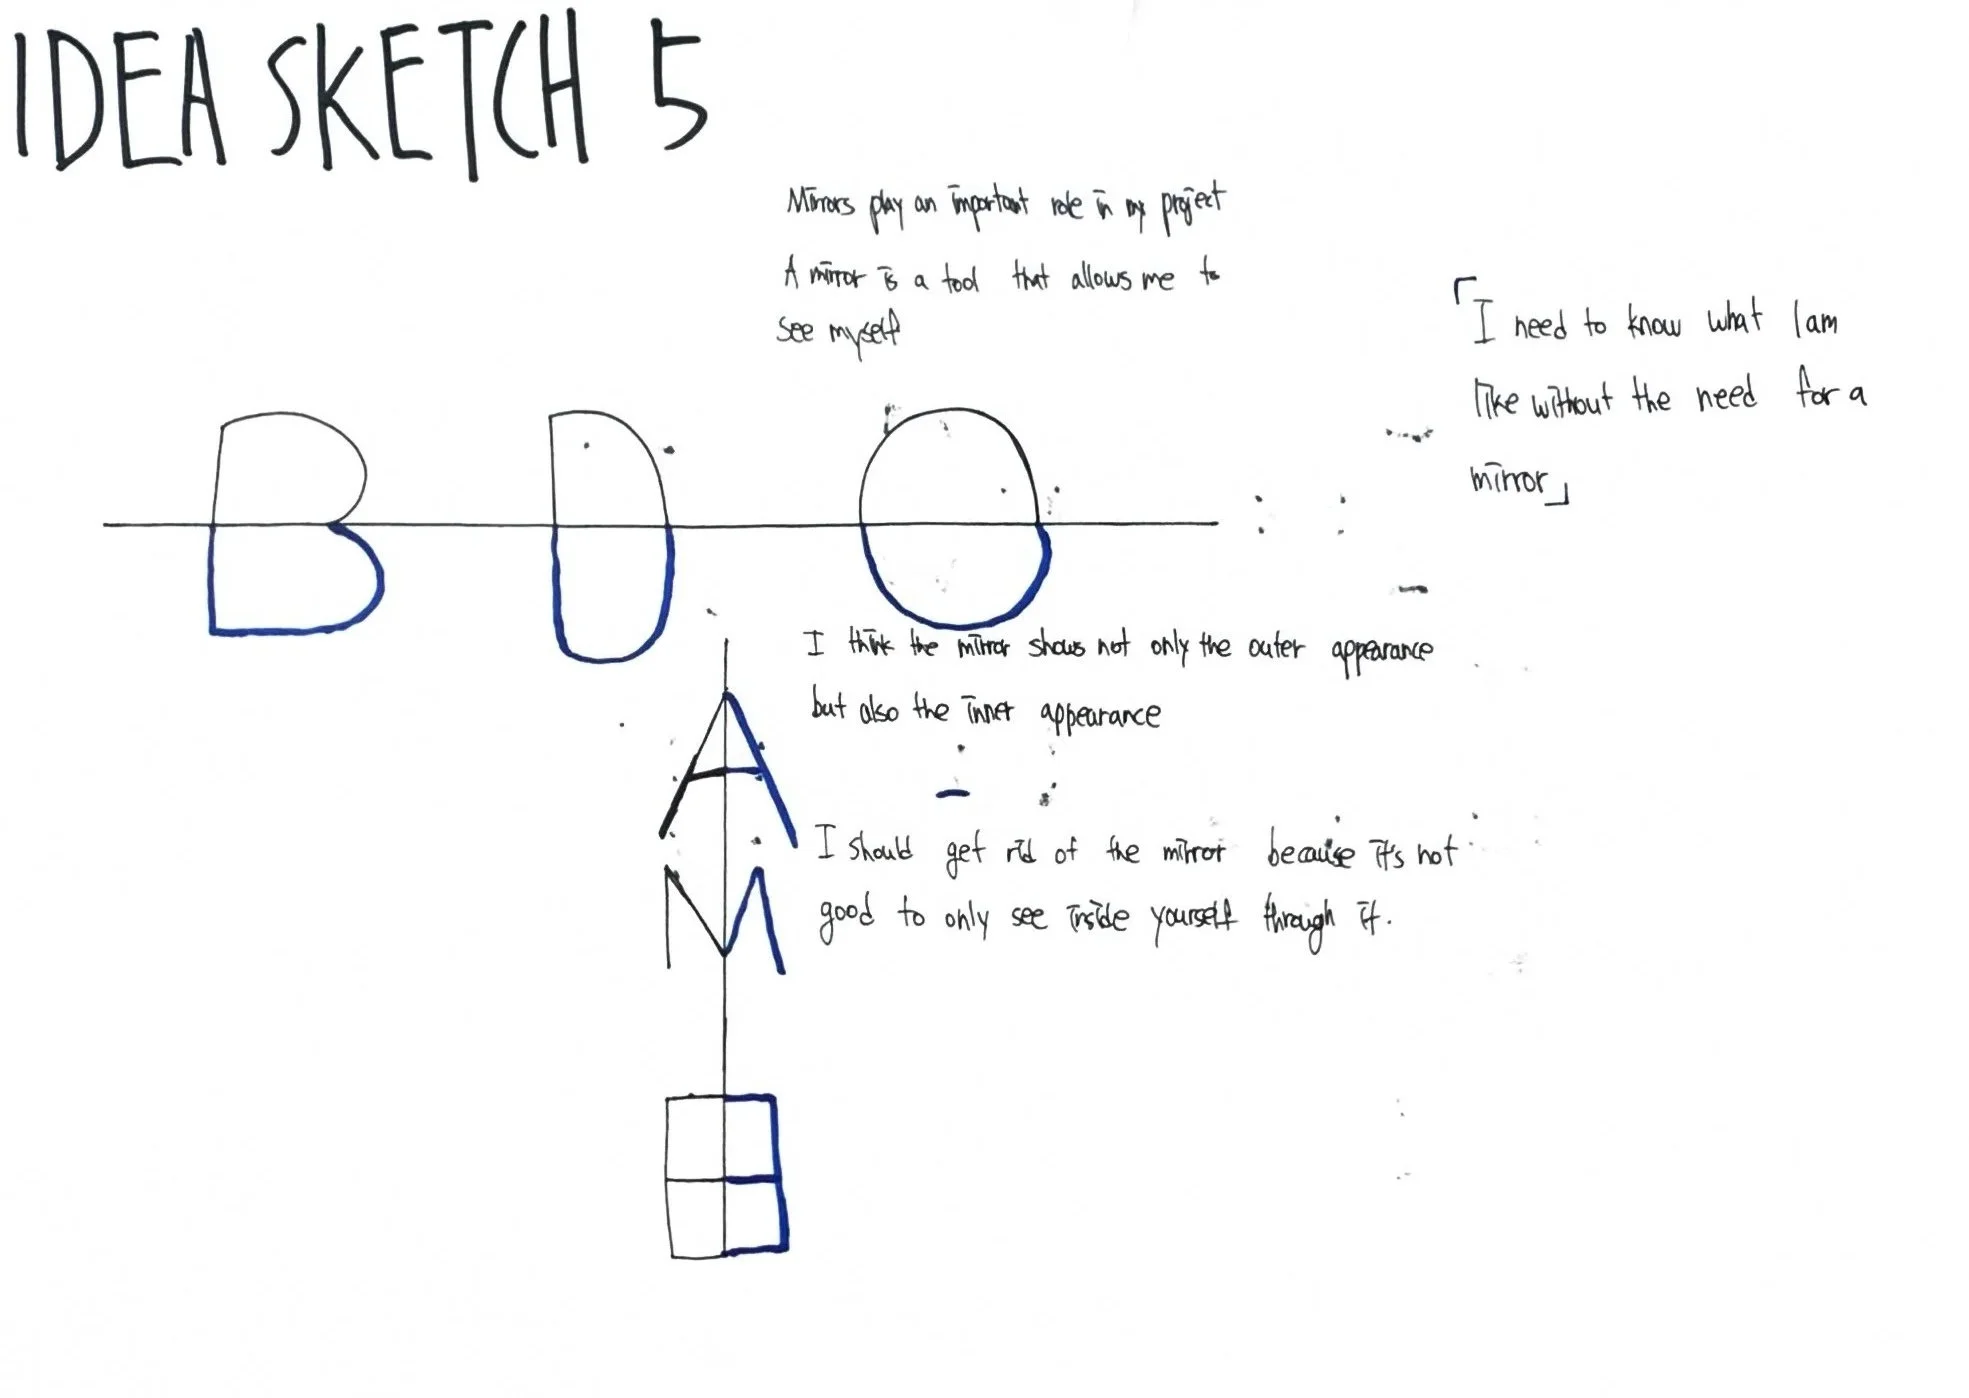 IDEA SKETCH 5
Mirrors play an important role in my project
A mirror is a tool that allows me to
see myself
「I need to know what I am
like without the need for a
mirror」
B D O
I think the mirror shows not only the outer appearance
but also the inner appearance
A
I should get rid of the mirror because it's not
good to only see inside yourself through it.
M